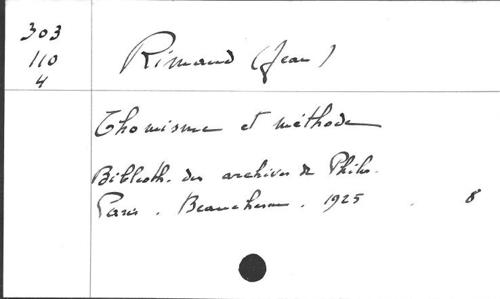 303
110
4
Rimaud (Jean)
Thomisme et méthode
Biblioth. des archives de Philos.
Paris. Beauchesne. 1925. 8